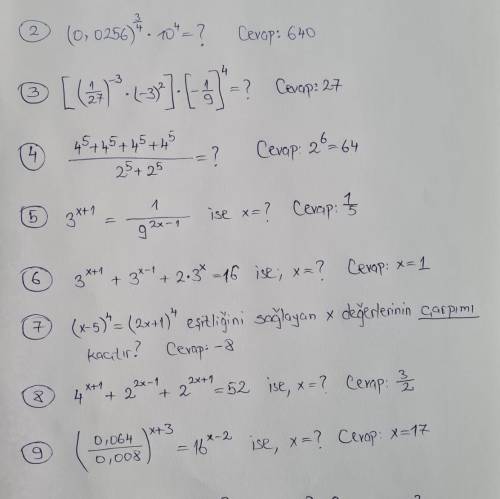 ② (0,0256)^(3/4) · 10^4 = ? Cevap: 640
③ [(1/27)^-3 · (-3)^2] · [-1/9]^4 = ? Cevap: 27
④ (4^5+4^5+4^5+4^5)/(2^5+2^5) = ? Cevap: 2^6 = 64
⑤ 3^(x+1) = 1/9^(2x-1) ise x = ? Cevap: 1/5
⑥ 3^(x+1) + 3^(x-1) + 2·3^x = 16 ise, x = ? Cevap: x = 1
⑦ (x-5)^4 = (2x+1)^4 eşitliğini sağlayan x değerlerinin çarpımı
kaçtır? Cevap: -8
⑧ 4^(x+1) + 2^(2x-1) + 2^(2x+1) = 52 ise, x = ? Cevap: 3/2
⑨ (0,064/0,008)^(x+3) = 16^(x-2) ise, x = ? Cevap: x = 17